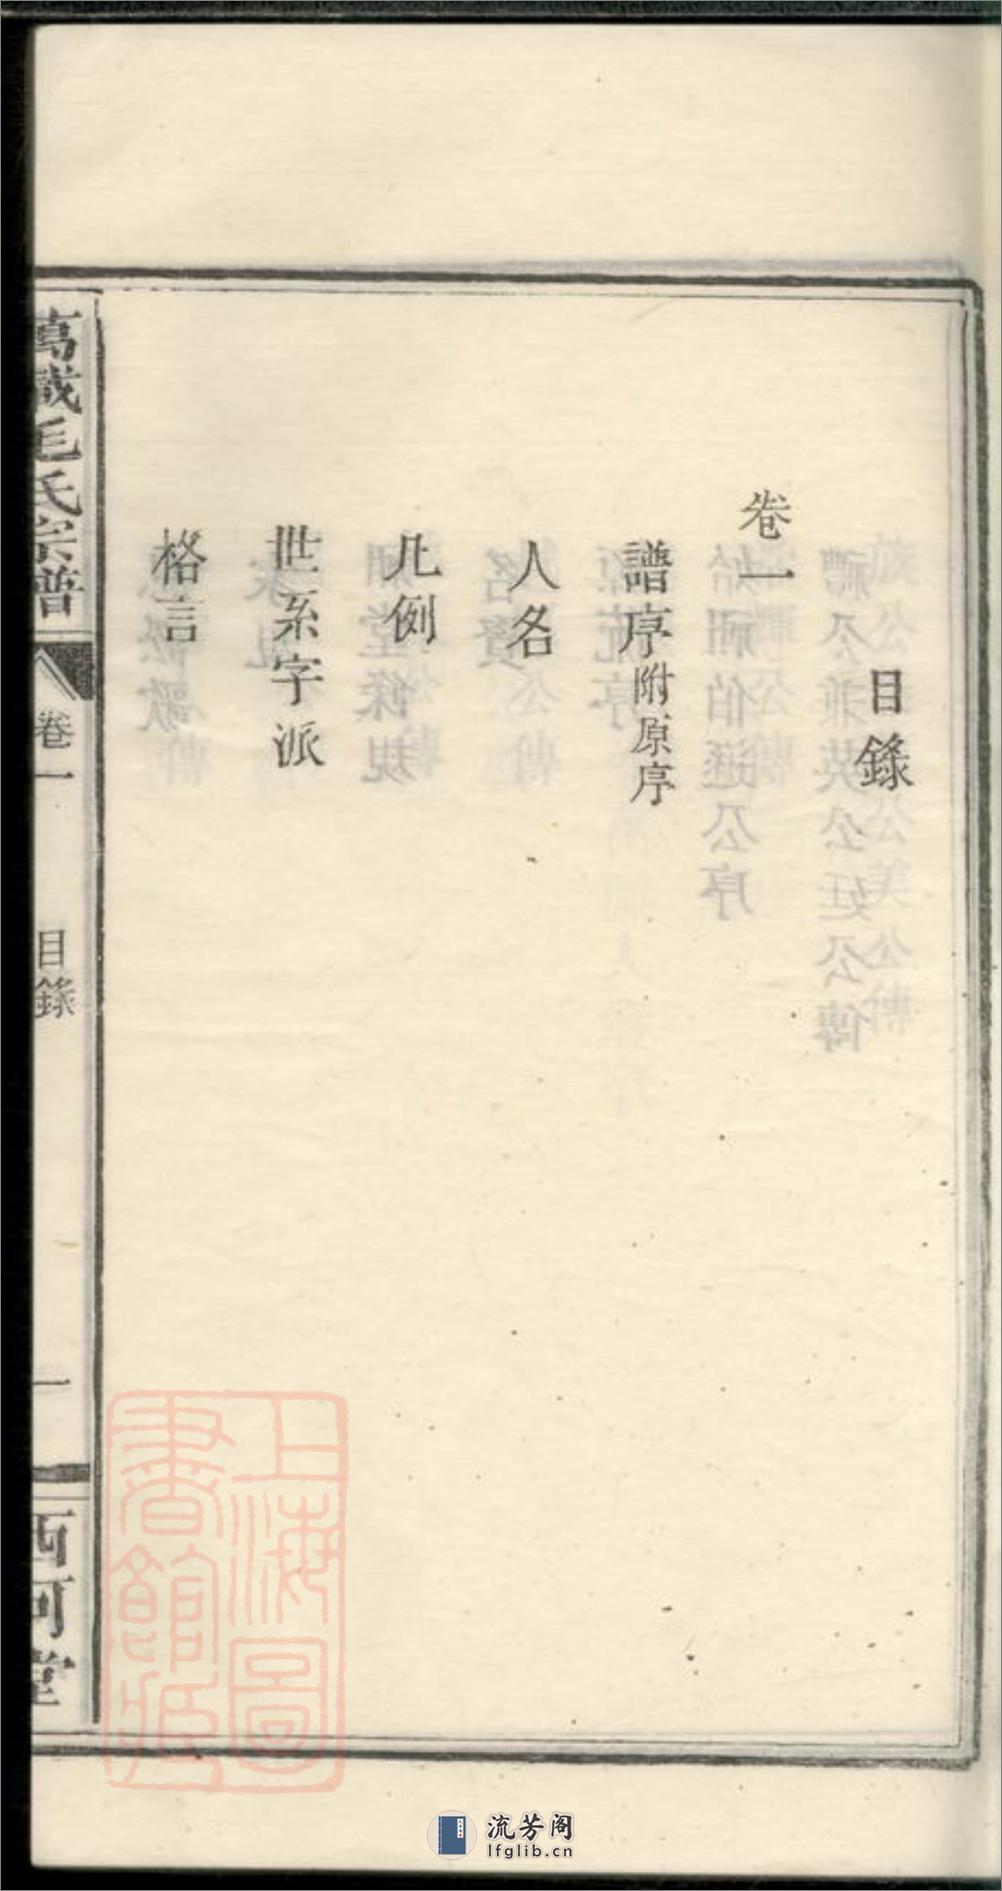 目錄
卷一
譜序附原序
人名
凡例
世系字派
格言
萬載毛氏宗譜
卷一
目錄
一
西河堂
上海圖書館藏
流芳阁
lfglib.cn